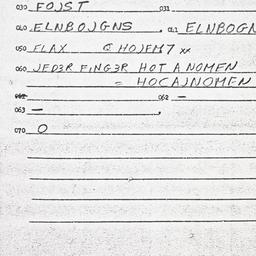 030 FOJST 031
040 ELNBOJGNS . 041 ELNBOGN
050 FLAX @ HOJFM7 xx
060 JED3R FING3R HOT A NOMEN
= HOCAJNOMEN
062 062 —
063 — .
070 O